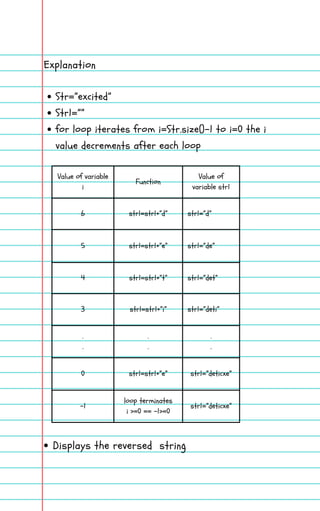 Explanation
• Str="excited"
• Str1=""
• for loop iterates from i=Str.size()-1 to i=0 the i
value decrements after each loop
Value of variable i Function Value of variable str1
6 str1=str1+"d" str1="d"
5 str1=str1+"e" str1="de"
4 str1=str1+"t" str1="det"
3 str1=str1+"i" str1="deti"
. . .
. . .
0 str1=str1+"e" str1="deticxe"
-1 loop terminates i >=0 == -1>=0 str1="deticxe"
• Displays the reversed string